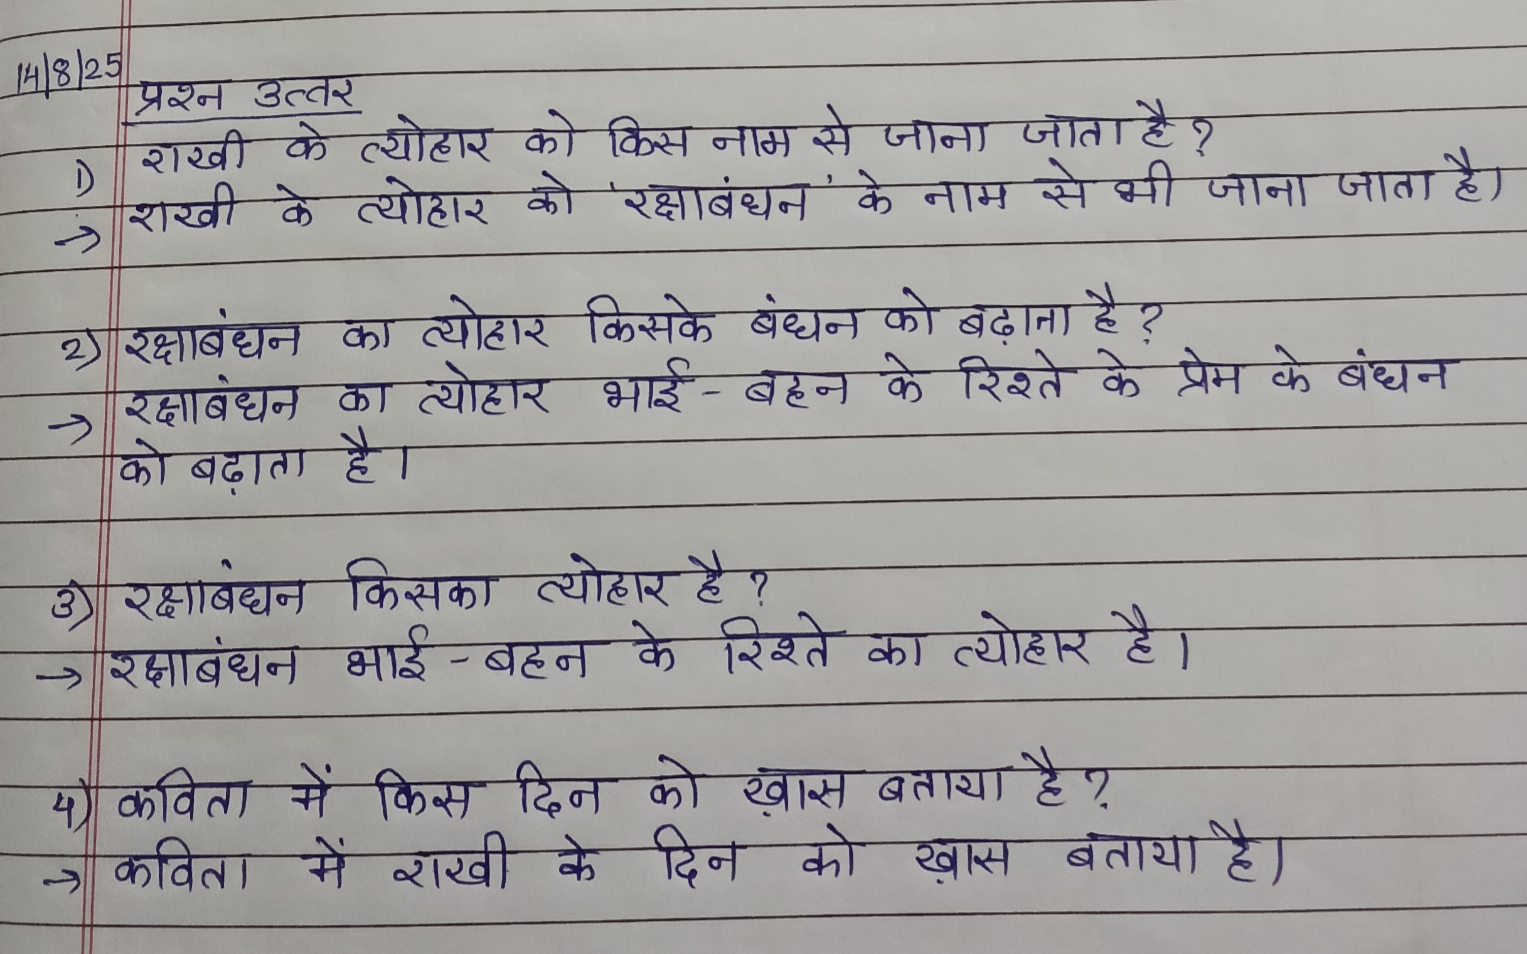 14/8/25
प्रश्न उत्तर
1) राखी के त्योहार को किस नाम से जाना जाता है?
→ राखी के त्योहार को 'रक्षाबंधन' के नाम से भी जाना जाता है।
2) रक्षाबंधन का त्योहार किसके बंधन को बढ़ाता है?
→ रक्षाबंधन का त्योहार भाई - बहन के रिश्ते के प्रेम के बंधन
को बढ़ाता है।
3) रक्षाबंधन किसका त्योहार है?
→ रक्षाबंधन भाई - बहन के रिश्ते का त्योहार है।
4) कविता में किस दिन को ख़ास बताया है?
→ कविता में राखी के दिन को ख़ास बताया है।